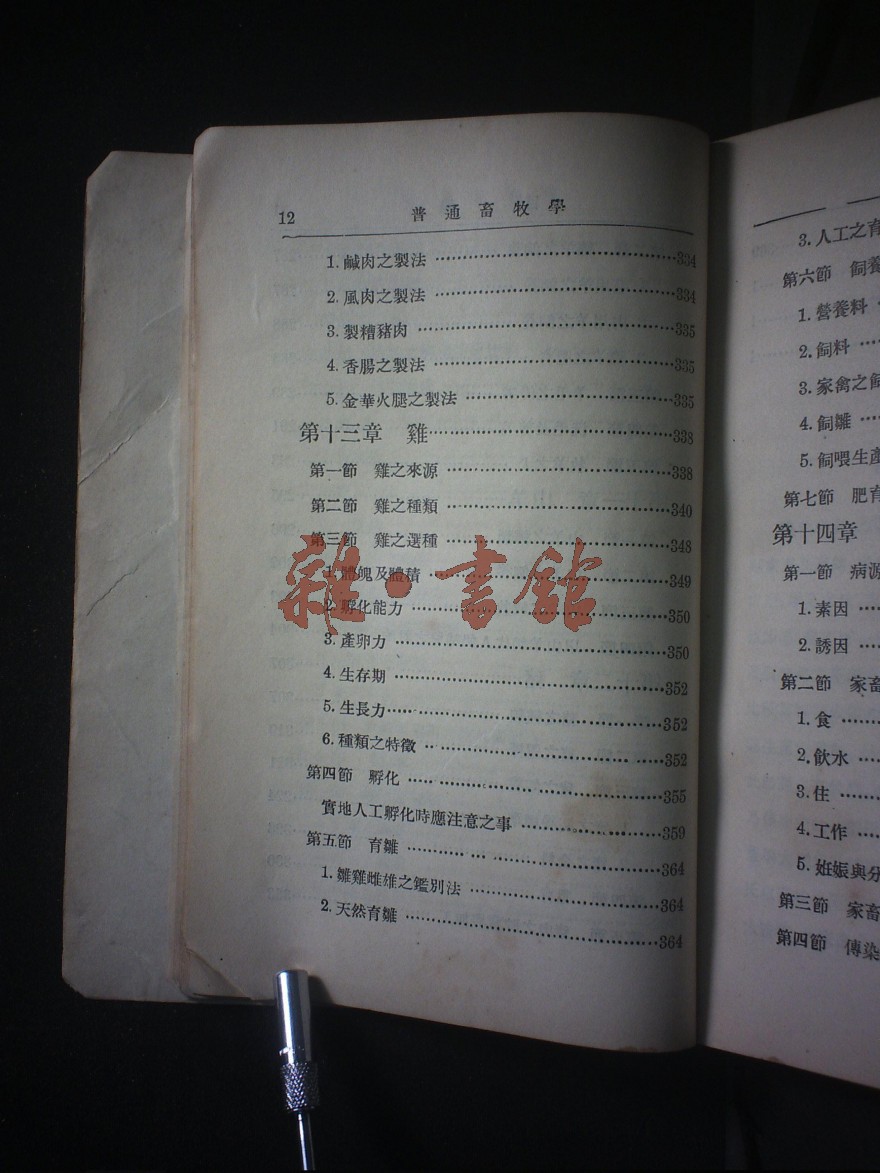 12 普通畜牧學
1. 鹹肉之製法 ……………334
2. 風肉之製法 ……………334
3. 製糟豬肉 ……………335
4. 香腸之製法 ……………335
5. 金華火腿之製法 ……………335
第十三章 雞……………338
第一節 雞之來源 ……………338
第二節 雞之種類 ……………340
第三節 雞之選種 ……………348
1. 體魄及體積 ……………349
2. 孵化能力 ……………350
3. 產卵力 ……………350
4. 生存期 ……………352
5. 生長力……………352
6. 種類之特徵 ……………352
第四節 孵化 ……………355
實地人工孵化時應注意之事 ……………359
第五節 育雛 ……………364
1. 雛雞雌雄之鑑別法 ……………364
2. 天然育雛 ……………364
雜·書館
3. 人工之育
第六節 飼養
1. 營養料
2. 飼料 ……
3. 家禽之飼
4. 飼雛 ……
5. 飼喂生產
第七節 肥育
第十四章
第一節 病源
1. 素因 ……
2. 誘因 ……
第二節 家畜
1. 食 ……
2. 飲水 ……
3. 住 ……
4. 工作 ……
5. 妊娠與分
第三節 家畜
第四節 傳染